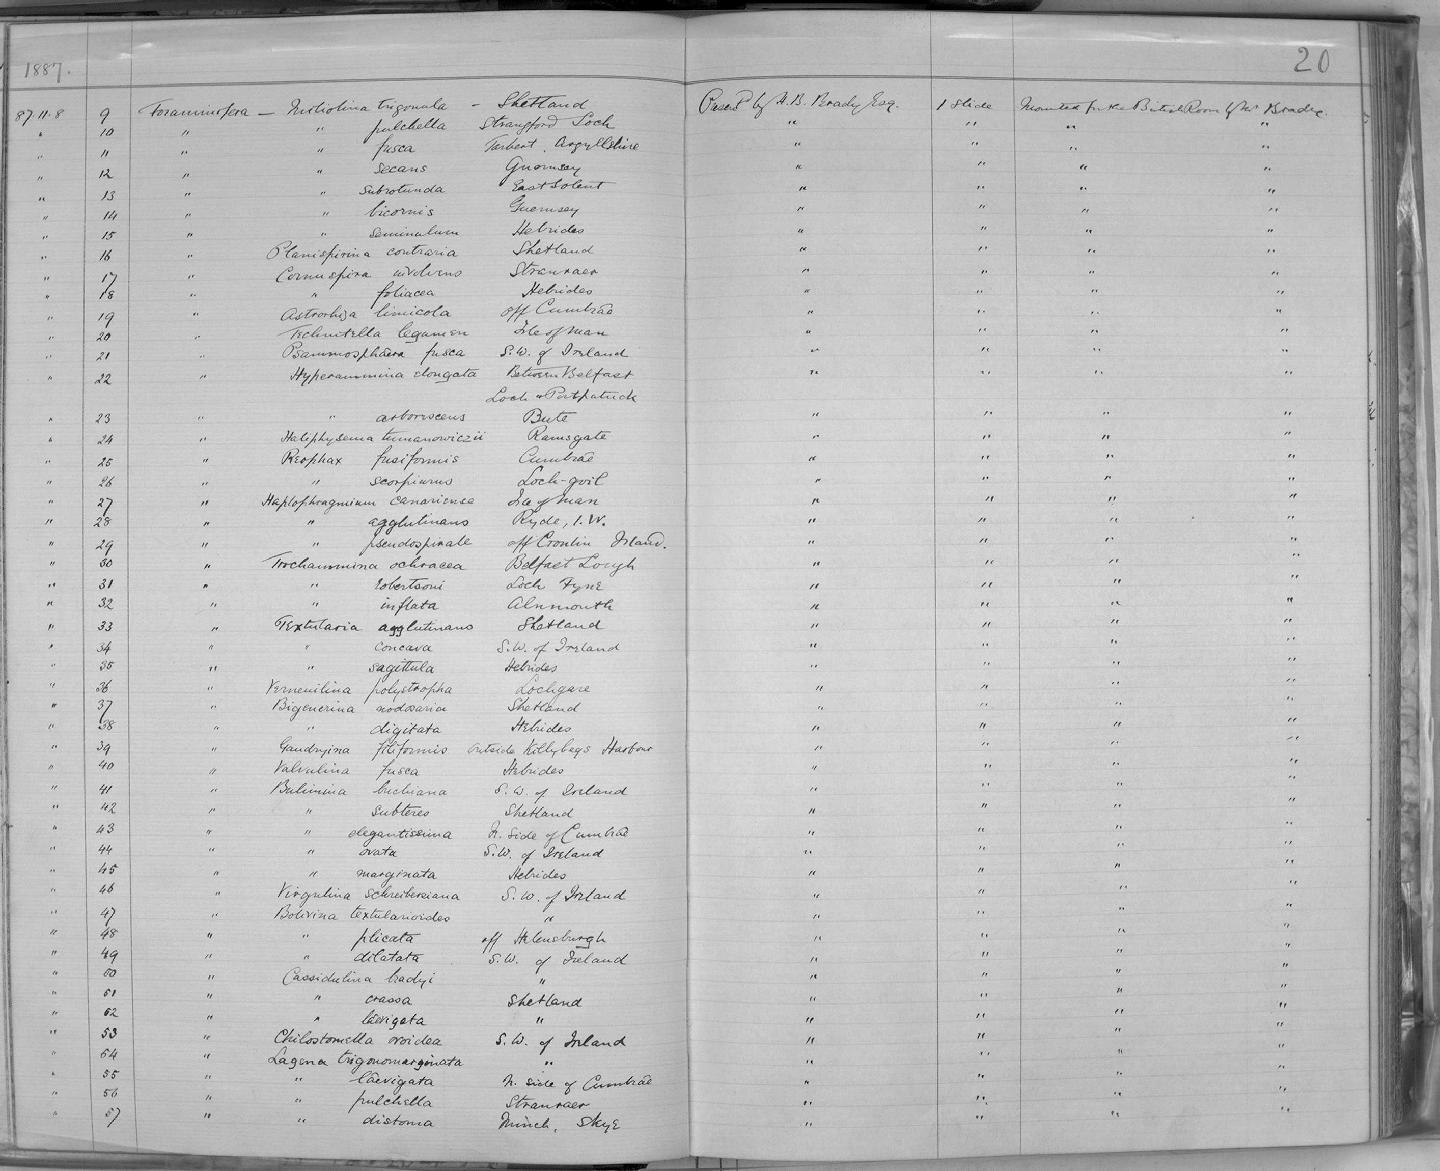 1887.
20
87.11.8 9 Foraminifera — Miliolina trigonula — Shetland Presd by H.B. Brady Esq. 1 Slide Mounted for the British Room by Mr Brady.
" 10 " " pulchella Strangford Loch " " " "
" 11 " " fusca Tarbert, Argyllshire " " " "
" 12 " " secans Guernsey " " " "
" 13 " " subrotunda East Solent " " " "
" 14 " " bicornis Guernsey " " " "
" 15 " " seminulum Hebrides " " " "
" 16 " Planispirina contraria Shetland " " " "
" 17 " Cornuspira involvens Stranraer " " " "
" 18 " " foliacea Hebrides " " " "
" 19 " Astrorhiza limicola off Cumbrae " " " "
" 20 " Technitella legumen Isle of Man " " " "
" 21 " Psammosphaera fusca S.W. of Ireland " " " "
" 22 " Hyperammina elongata Between Belfast " " " "
Loch & Portpatrick
" 23 " " arborescens Bute " " " "
" 24 " Haliphysema tumanowiczii Ramsgate " " " "
" 25 " Reophax fusiformis Cumbrae " " " "
" 26 " " scorpiurus Loch-goil " " " "
" 27 " Haplophragmium canariense Isle of Man " " " "
" 28 " " agglutinans Ryde, I.W. " " " "
" 29 " " pseudospirale off Ireland. " " " "
" 30 " Trochammina ochracea Belfast Lough " " " "
" 31 " " robertsoni Loch Fyne " " " "
" 32 " " inflata Alnmouth " " " "
" 33 " Textularia agglutinans Shetland " " " "
" 34 " " concava S.W. of Ireland " " " "
" 35 " " sagittula Hebrides " " " "
" 36 " Verneuilina polystropha Lochgare " " " "
" 37 " Bigenerina nodosaria Shetland " " " "
" 38 " " digitata Hebrides " " " "
" 39 " Gaudryina filiformis outside Killybegs Harbour " " " "
" 40 " Valvulina fusca Hebrides " " " "
" 41 " Bulimina buchiana S.W. of Ireland " " " "
" 42 " " subteres Shetland " " " "
" 43 " " elegantissima N. side of Cumbrae " " " "
" 44 " " ovata S.W. of Ireland " " " "
" 45 " " marginata Hebrides " " " "
" 46 " Virgulina schreibersiana S.W. of Ireland " " " "
" 47 " Bolivina textularioides " " " " "
" 48 " " plicata off Helensburgh " " " "
" 49 " " dilatata S.W. of Ireland " " " "
" 50 " Cassidulina bradyi " " " " "
" 51 " " crassa Shetland " " " "
" 52 " " laevigata " " " " "
" 53 " Chilostomella ovoidea S.W. of Ireland " " " "
" 54 " Lagena trigonomarginata " " " " "
" 55 " " laevigata N. side of Cumbrae " " " "
" 56 " " pulchella Stranraer " " " "
" 57 " " distoma Minch, Skye " " " "